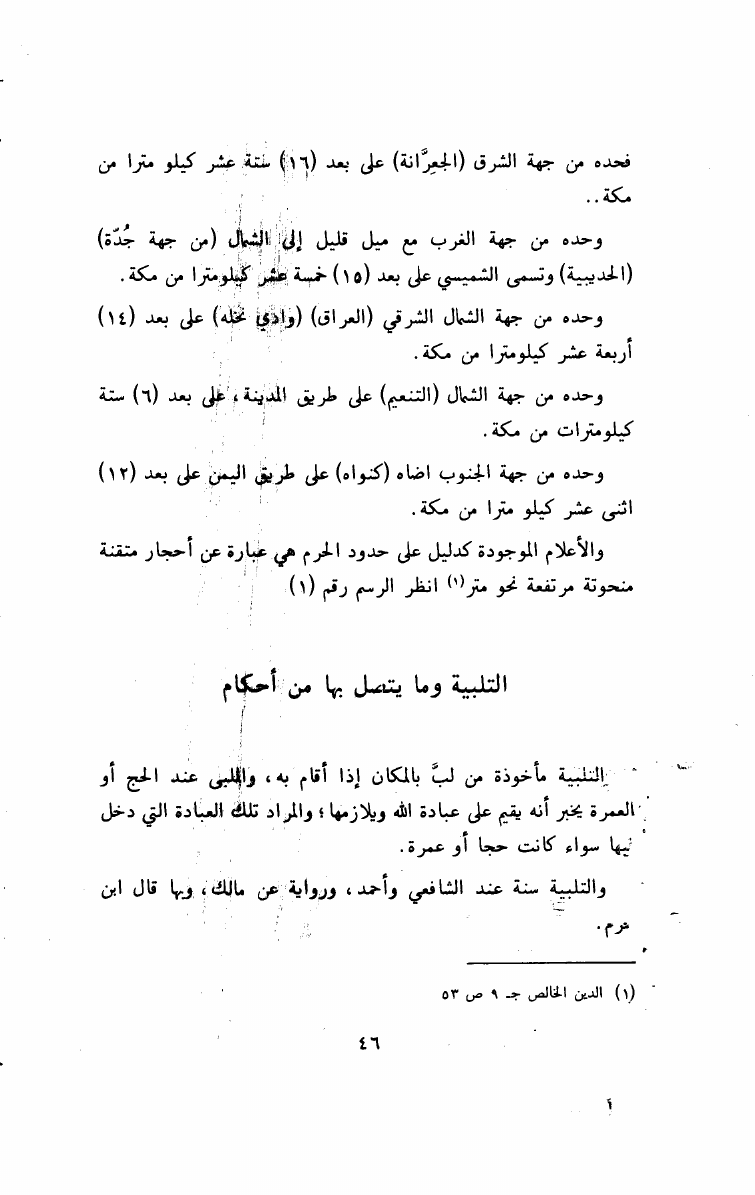 فحده من جهة الشرق (الجعِرَّانة) على بعد (١٦) ستة عشر كيلو مترا من
مكة . .
وحده من جهة الغرب مع ميل قليل إلى الشمال (من جهة جُدّة)
(الحديبية) وتسمى الشميسي على بعد (١٥) خمسة عشر كيلومترا من مكة .
وحده من جهة الشمال الشرقي (العراق) (وادي نخله) على بعد (١٤)
أربعة عشر كيلومترا من مكة .
وحده من جهة الشمال (التنعيم) على طريق المدينة ، على بعد (٦) ستة
كيلومترات من مكة .
وحده من جهة الجنوب اضاه (كنواه) على طريق اليمن على بعد (١٢)
اثنى عشر كيلو مترا من مكة .
والأعلام الموجودة كدليل على حدود الحرم هي عبارة عن أحجار متقنة
منحوتة مرتفعة نحو متر(١) انظر الرسم رقم (١)
التلبية وما يتصل بها من أحكام
التلبية مأخوذة من لبَّ بالمكان إذا أقام به ، والملبى عند الحج أو
العمرة يخبر أنه يقيم على عبادة الله ويلازمها ؛ والمراد تلك العبادة التي دخل
فيها سواء كانت حجا أو عمرة .
والتلبية سنة عند الشافعي وأحمد ، ورواية عن مالك ، وبها قال ابن
حزم .
(١) الدين الخالص جـ ٩ ص ٥٣
٤٦